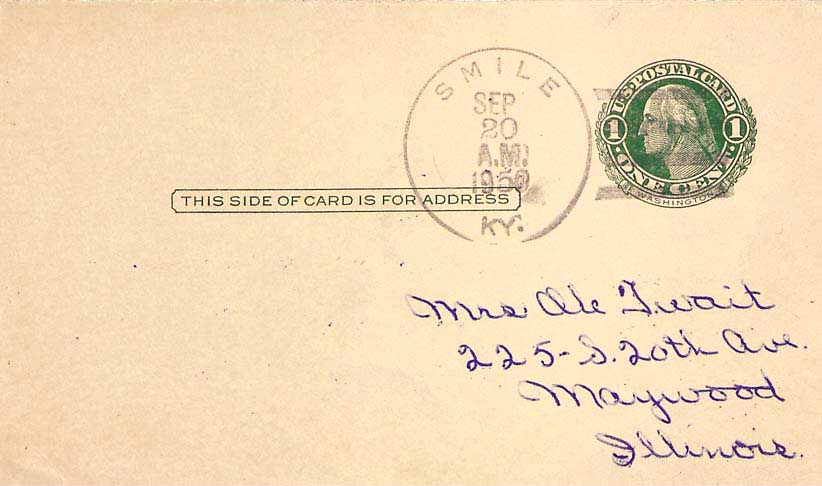 SMILE
SEP
20
A.M.
1950
KY.
U.S. POSTAL CARD
1 1
ONE CENT
WASHINGTON
THIS SIDE OF CARD IS FOR ADDRESS
Mrs Ole Twait
225-S. 20th Ave.
Maywood
Illinois.